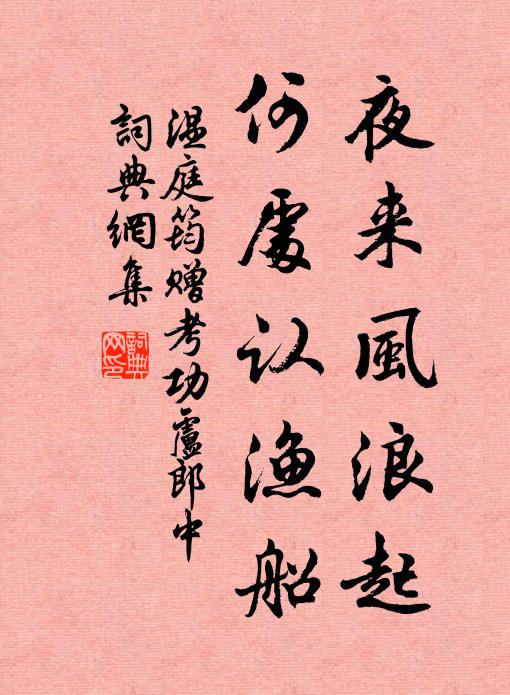 夜来風浪起
何處认漁船
温庭筠赠考功盧郎中
詞典網集
詞典
网印